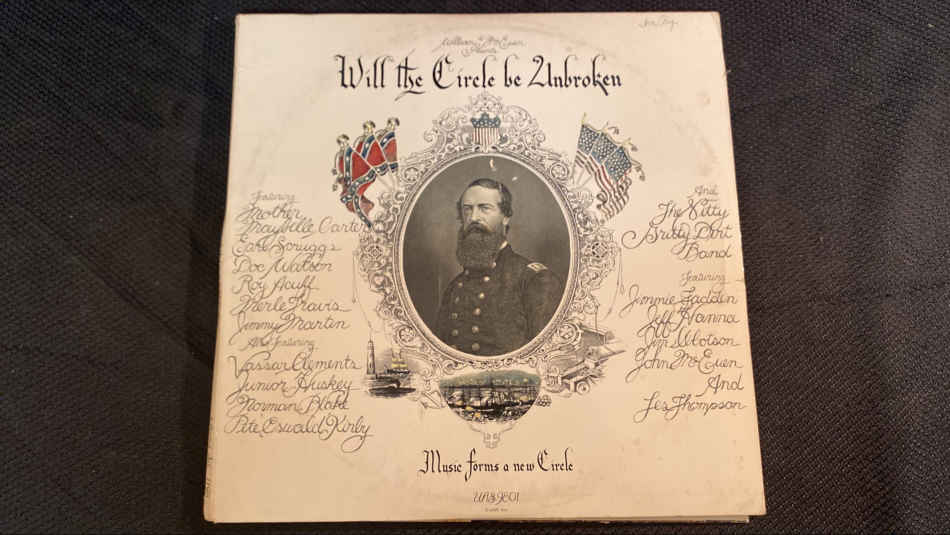 William E. McEuen
Presents
Will the Circle be Unbroken
Featuring
Mother
Maybelle Carter
Earl Scruggs
Doc Watson
Roy Acuff
Merle Travis
Jimmy Martin
And featuring
Vassar Clements
Junior Huskey
Norman Blake
Pete Oswald Kirby
And
The Nitty
Gritty Dirt
Band
Featuring
Jimmie Fadden
Jeff Hanna
Jim Ibbotson
John McEuen
And
Les Thompson
Music forms a new Circle
UAS 9801